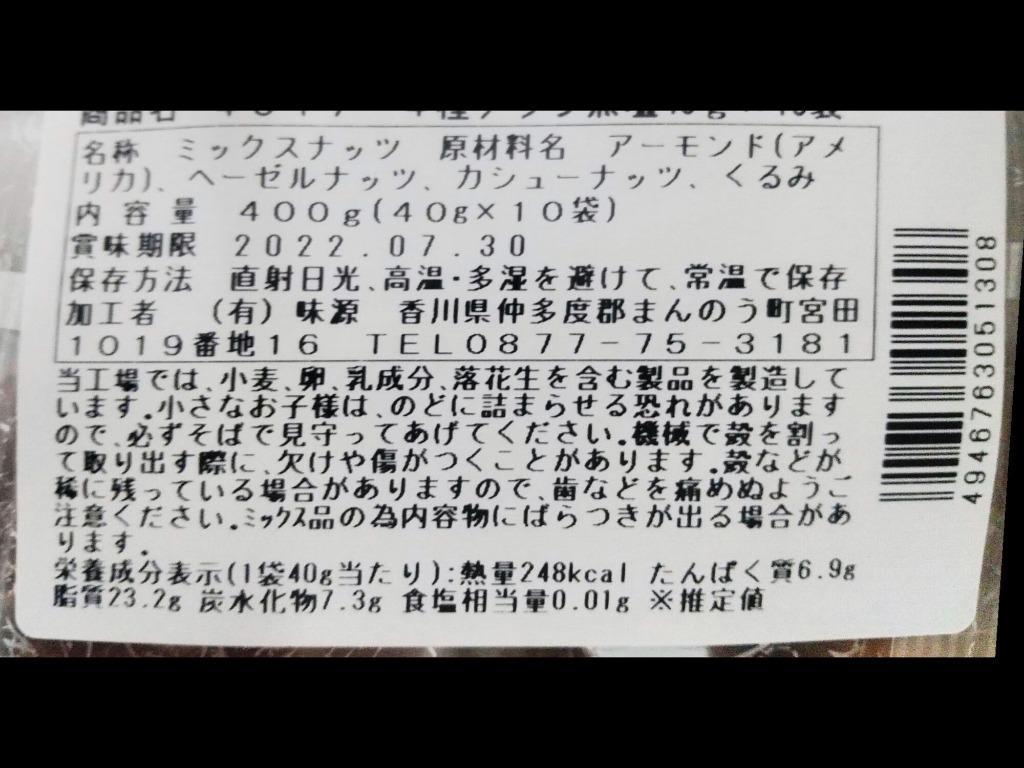 名称 ミックスナッツ 原材料名 アーモンド(アメ
リカ)、ヘーゼルナッツ、カシューナッツ、くるみ
内容量 400g(40g×10袋)
賞味期限 2022.07.30
保存方法 直射日光、高温・多湿を避けて、常温で保存
加工者 (有)味源 香川県仲多度郡まんのう町宮田
1019番地16 TEL0877-75-3181
当工場では、小麦、卵、乳成分、落花生を含む製品を製造して
います。小さなお子様は、のどに詰まらせる恐れがあります
ので、必ずそばで見守ってあげてください。機械で殻を割っ
て取り出す際に、欠けや傷がつくことがあります。殻などが
稀に残っている場合がありますので、歯などを痛めぬようご
注意ください。ミックス品の為内容物にばらつきが出る場合があ
ります。
栄養成分表示(1袋40g当たり):熱量248kcal たんぱく質6.9g
脂質23.2g 炭水化物7.3g 食塩相当量0.01g ※推定値
4946763051308